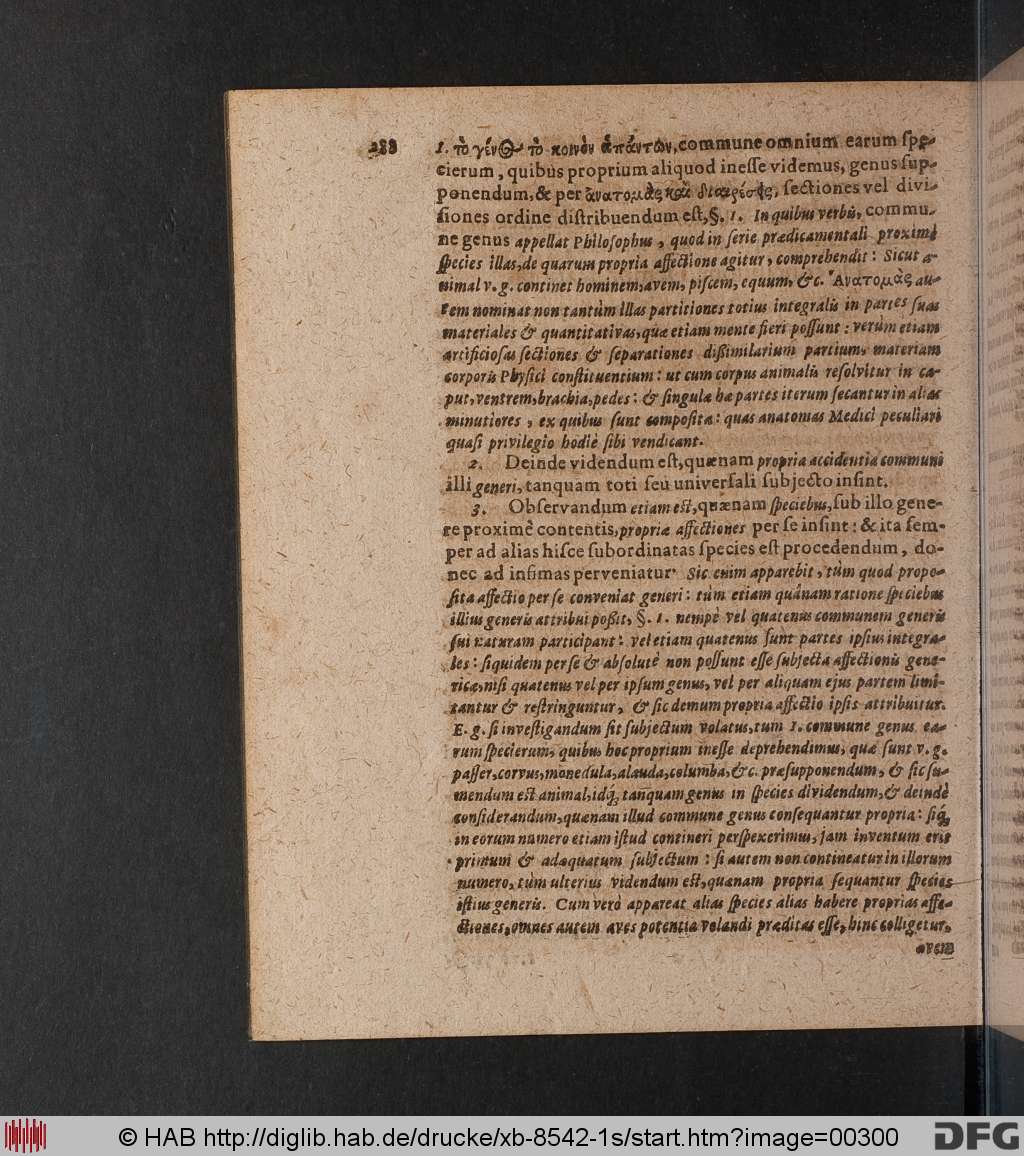 288
1. τὸ γένος τὸ κοινὸν ἁπάντων, commune omnium earum ſpe-
cierum, quibus proprium aliquod ineſſe videmus, genus ſup-
ponendum, & per ἀνατομὰς καὶ διαιρέσεις, ſectiones vel divi-
ſiones ordine diſtribuendum eſt, §. 1. In quibus verbis, commu-
ne genus appellat Philoſophus, quod in ſerie prædicamentali proximè
ſpecies illas, de quarum propria affectione agitur, comprehendit: Sicut a-
nimal v. g. continet hominem, avem, piſcem, equum, &c. Ἀνατομὰς au-
tem nominat non tantùm illas partitiones totius integralis in partes ſuas
materiales & quantitativas, quæ etiam mente fieri poſſunt: verùm etiam
artificioſas ſectiones & ſeparationes diſſimilarium partium, materiam
corporis Phyſici conſtituentium: ut cum corpus animalis reſolvitur in ca-
put, ventrem, brachia, pedes: & ſingulæ hæ partes iterum ſecantur in alias
minutiores, ex quibus ſunt compoſitæ: quas anatomas Medici peculiari
quaſi privilegio hodiè ſibi vendicant.
2. Deinde videndum eſt, quænam propria accidentia communi
illi generi, tanquam toti ſeu univerſali ſubjecto inſint.
3. Obſervandum etiam eſt, quænam ſpeciebus, ſub illo gene-
re proximè contentis, propriæ affectiones per ſe inſint: & ita ſem-
per ad alias hiſce ſubordinatas ſpecies eſt procedendum, do-
nec ad infimas perveniatur. Sic enim apparebit, tùm quod propo-
ſita affectio per ſe conveniat generi: tùm etiam quânam ratione ſpeciebus
illius generis attribui poſſit, §. 1. nempè vel quatenus communem generis
ſui naturam participant: vel etiam quatenus ſunt partes ipſius integra-
les: ſiquidem per ſe & abſolutè non poſſunt eſſe ſubjecta affectionis gene-
ricæ, niſi quatenus vel per ipſum genus, vel per aliquam ejus partem limi-
tantur & reſtringuntur, & ſic demum propria affectio ipſis attribuitur.
E. g. ſi inveſtigandum ſit ſubjectum volatus, tum 1. commune genus ea-
rum ſpecierum, quibus hoc proprium ineſſe deprehendimus, quæ ſunt v. g.
paſſer, corvus, monedula, alauda, columba, &c. præſupponendum, & ſic ſu-
mendum eſt animal, idq́; tanquam genus in ſpecies dividendum, & deindè
conſiderandum, quænam illud commune genus conſequantur propria: ſiq́;
in eorum numero etiam iſtud contineri perſpexerimus, jam inventum erit
primum & adæquatum ſubjectum: ſi autem non contineatur in illorum
numero, tùm ulterius videndum eſt, quænam propria ſequantur ſpecies
iſtius generis. Cum verò appareat alias ſpecies alias habere proprias affe-
ctiones, omnes autem aves potentia volandi præditas eſſe, hinc colligetur,
avem
© HAB http://diglib.hab.de/drucke/xb-8542-1s/start.htm?image=00300
DFG